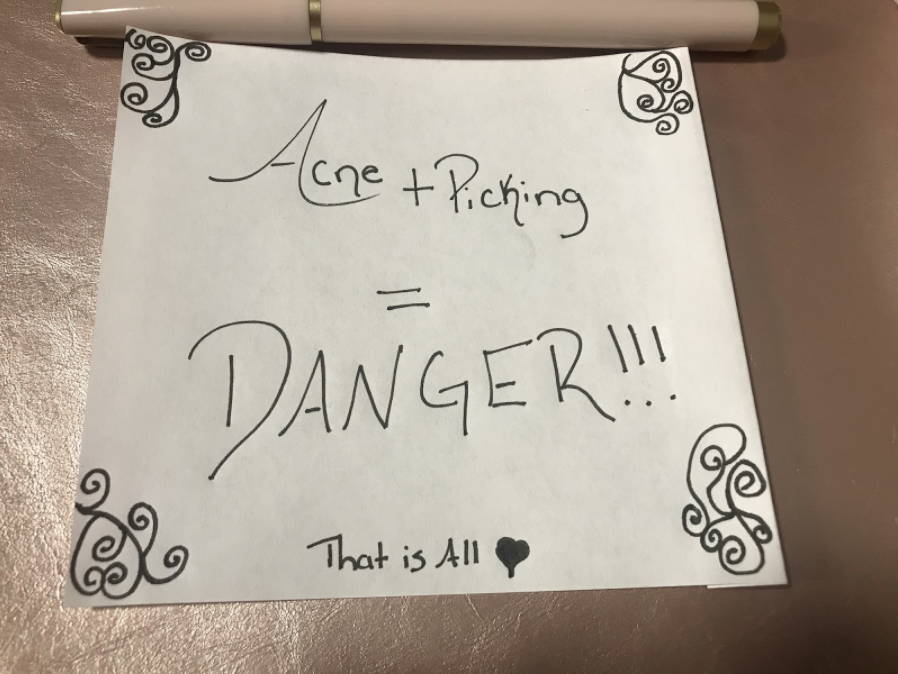 Acne + Picking
=
DANGER!!!
That is All ♥